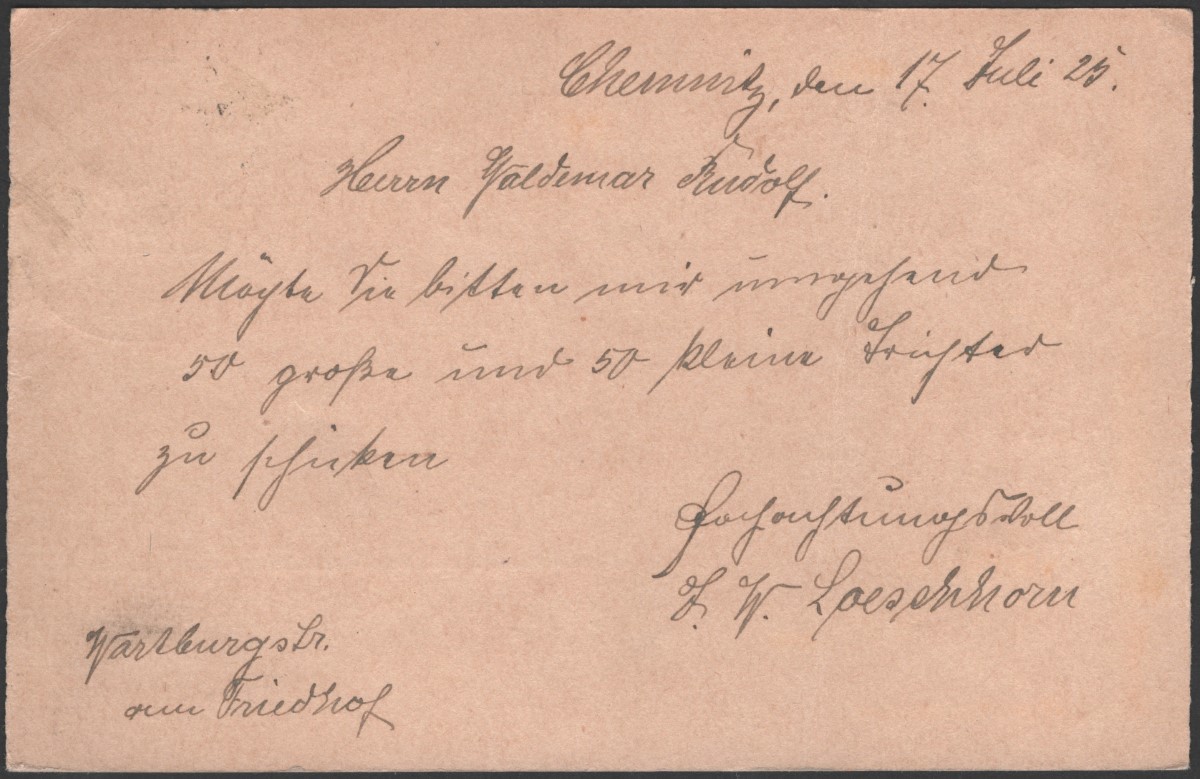 Chemnitz, den 17. Juli 25.
Herrn Waldemar Rudolf.
Möchte Sie bitten mir umgehend
50 große und 50 kleine Trichter
zu schicken
Hochachtungsvoll
F. W. Loeschhorn
Wartburgstr.
am Friedhof